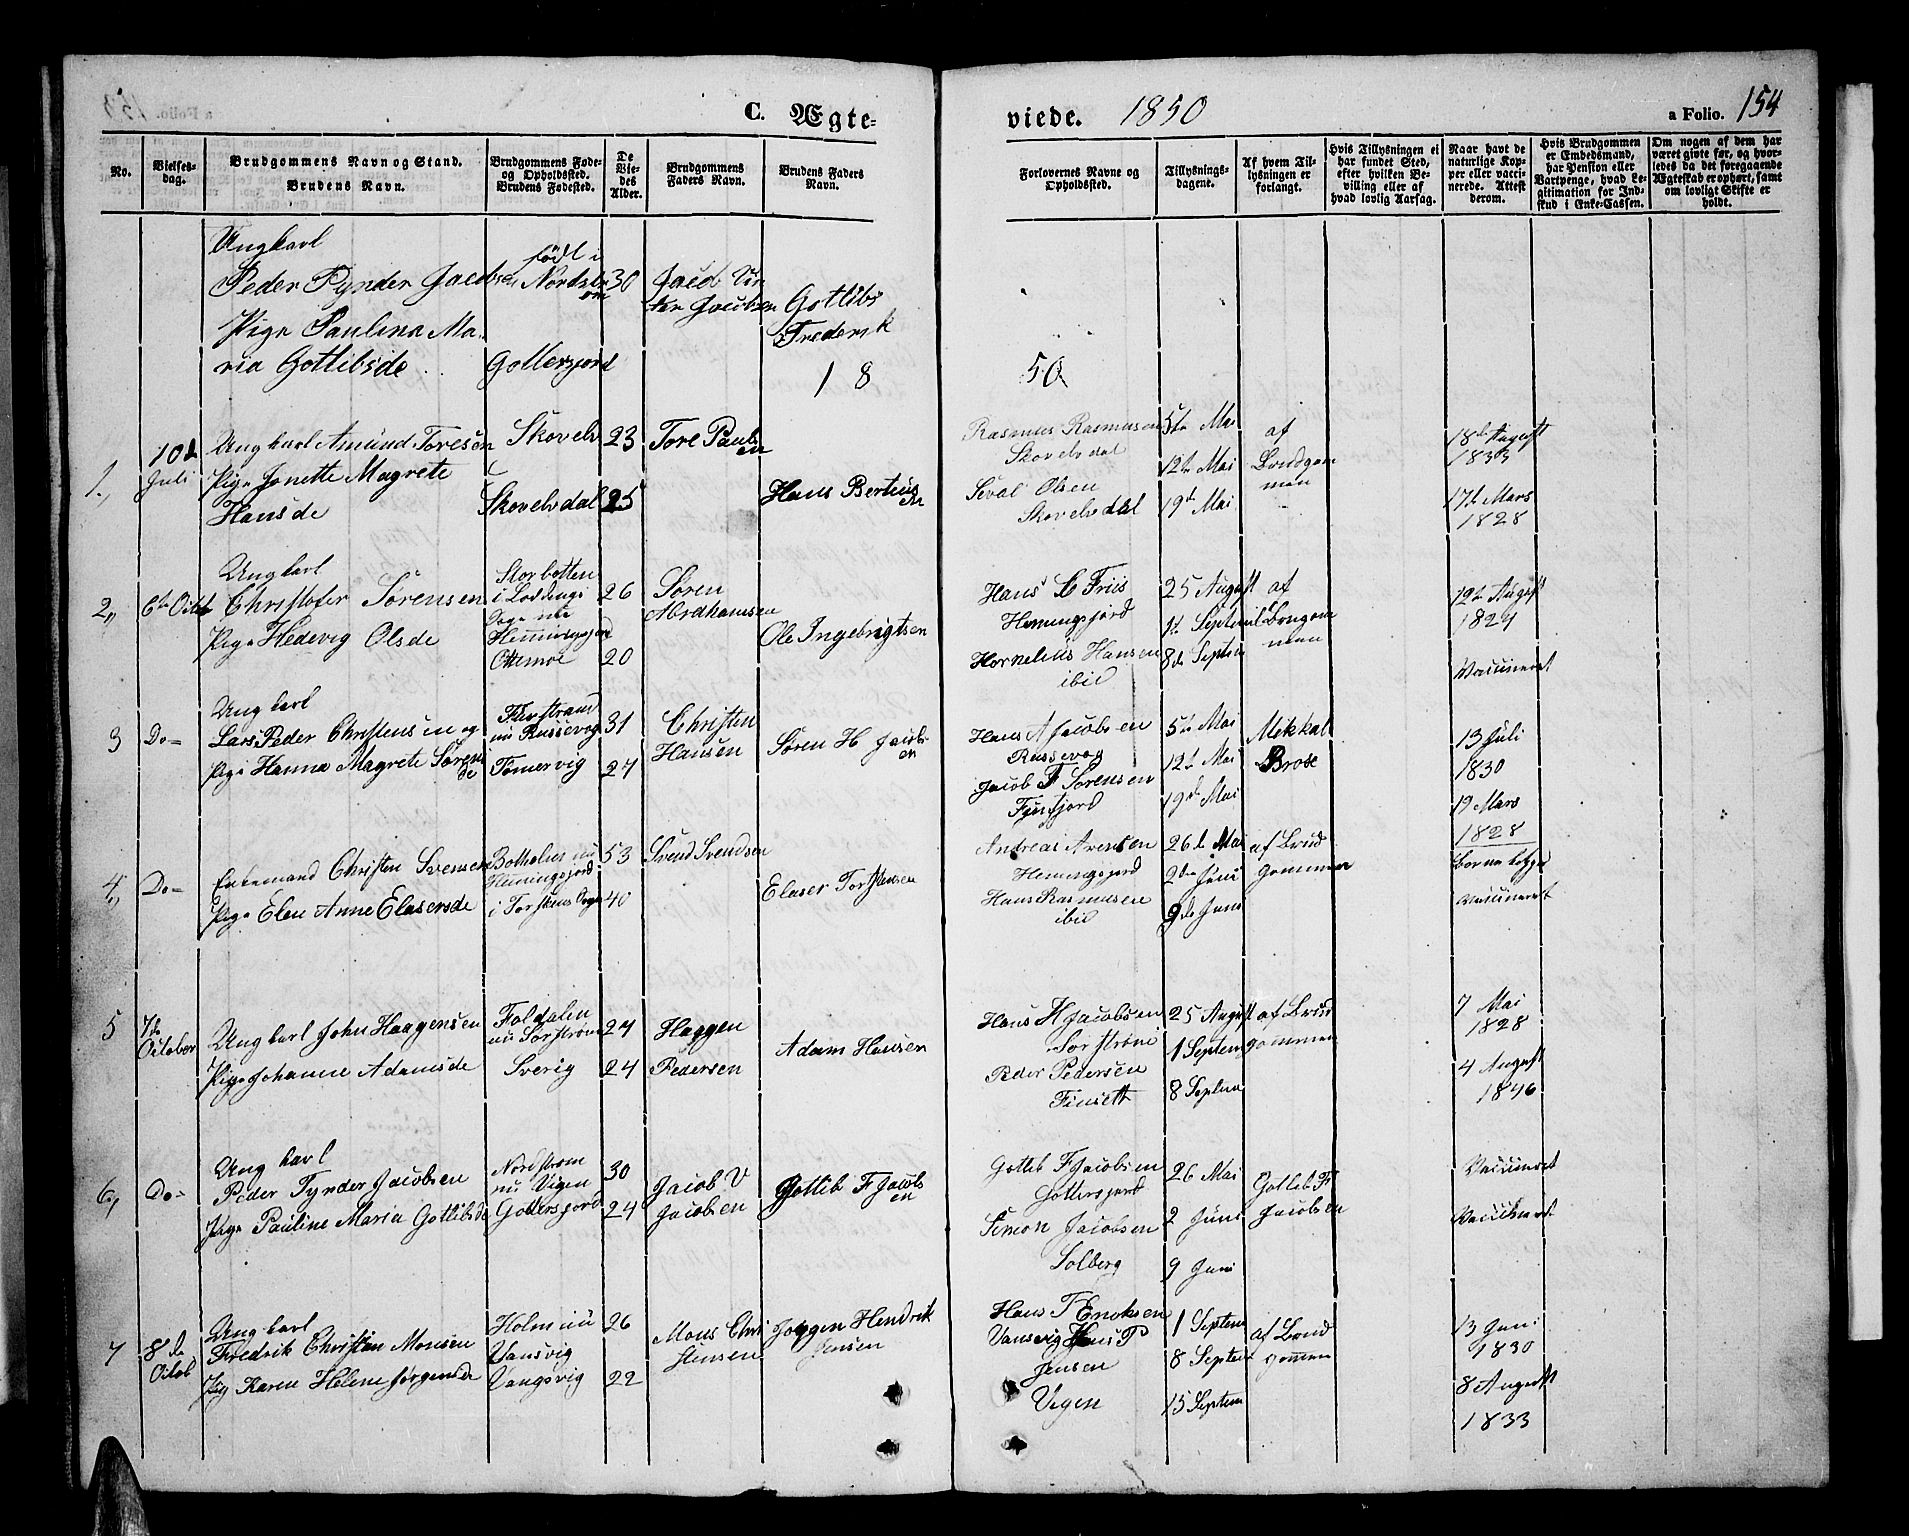 a Folio. 153
C. Ægte-
viede. 1850
a Folio. 154
No.
Vielses-
dag.
Brudgommens Navn og Stand.
Brudens Navn.
Brudgommens Føde-
og Opholdssted.
Brudens Fødested.
De
Vie-
des
Alder.
Brudgommens
Faders Navn.
Brudens Faders
Navn.
Forlovernes Navne og
Opholdssted.
Tillysnings-
dagene.
Af hvem Til-
lysningen er
forlangt.
Hvis Tillysningen ei
har fundet Sted,
efter hvilken Be-
villing eller af
hvad lovlig Aarsag.
Naar havt de
naturlige Kop-
per eller vacci-
nerede. Attest
derom.
Hvis Brudgommen
er Embedsmand,
har Pension eller
Vartpenge, hvad Le-
gitimation for Ind-
skud i Enke-Cassen.
Om nogen af dem har
været givte før, og hvor-
ledes da det foregaaende
Ægteskab er ophørt, samt
om lovligt Skifte er
holdt.
Ungkarl
Peder Tynder Jacobsen
Pige Paulina Ma-
ria Gottlibsde
født i
Nordstr
øm
Gottersjord
30
Jacob Vin
ter Jacobsen
Gotlibs
Frederik
18
50
1.,
10d
Juli
Ungkarl Amund Toresen
Pige Jonette Magrete
Hansde
Skovelv
Skovelvdal
23
25
Tore Pauls
en
Hans Bertius
en
Rasmus Rasmusen
Skovelvdal
Sival Olsen
Skovelvdal
5te Mai
12te Mai
19de Mai
af
Brudgom
men
18de August
1833
17de Mars
1828
2,,
6te Octob
Ungkarl
Christofer Sørensen
Pige Hedevig Olsde
Storbotten
i Lødings
Hemingsjord
Ottemoe
26
20
Søren
Abrahamsen
Ole Ingebrigtsen
Hans C Friis
Hemingsjord
Kornelius Hansen
ibid
25 August
1te Septem
8de Septem
af
Brugom
men
12te August
1829
Vaccineret
3
Do-
Ungkarl
Lars Peder Christensen og
Pige Hanna Magrete Sørens
de
nu Russevog
Tomervig
31
27
Christen
Hansen
Søren H Jacobs
en
Hans A Jacobsen
Russevog
Jacob F Sørensen
Fjursfjord
5te Mai
12te Mai
19de Mai
Mekkal
Brose
13 Juli
1830
19 Mars
1828
4,,
Do-
Enkemand Christen Svensen
Pige Elen Anne Elasersde
Bothelser nu
Hemingsjord
i Torskens Sogn
53
40
Svend Svendsen
Elaser Torstensen
Andreas Arensen
Hemingsjord
Hans Rasmusen
ibid
26de Mai
2den Juni
9de Juni
af Brud
gommen
Vaccineret
5
7de
October
Ungkarl John Haagensen
Pige Johanne Adamsde
Foldalen
nu Sørstrøm
Sverig
27
24
Haggen
Pedersen
Adam Hansen
Hans H Jacobsen
Sørstrøm
Peder Pedersen
Finsett
25 August
1 Septem
8 Septem
af Brud
gommen
7 Mai
1828
4 August
1846
6,,
Do-
Ungkarl
Peder Tynder Jacobsen
Pige Pauline Maria Gotlibsde
Nordstrøm
nu Vigen
Gottersjord
30
24
Jacob V
Jacobsen
Gottlib F Jacobs
en
Gotlib F Jacobsen
Gottersjord
Simon Jacobsen
Solberg
26 Mai
2 Juni
9 Juni
Gotleb F
Jacobsen
Vaccineret
Vaccineret
7
8de
Octob
Ungkarl
Fredrik Christian Monsen
Pig Karen Helene Jørgensde
Holm nu
Vansvig
Vangsvig
26
22
Mons Chri
stensen
Jørgen Hendrik
Jensen
Hans T Enoksen
Vansvig Jens P
Jensen
Vigen
1 Septem
8 Septem
15 Septem
af Brud
gommen
13 Juni
1830
8 August
1833